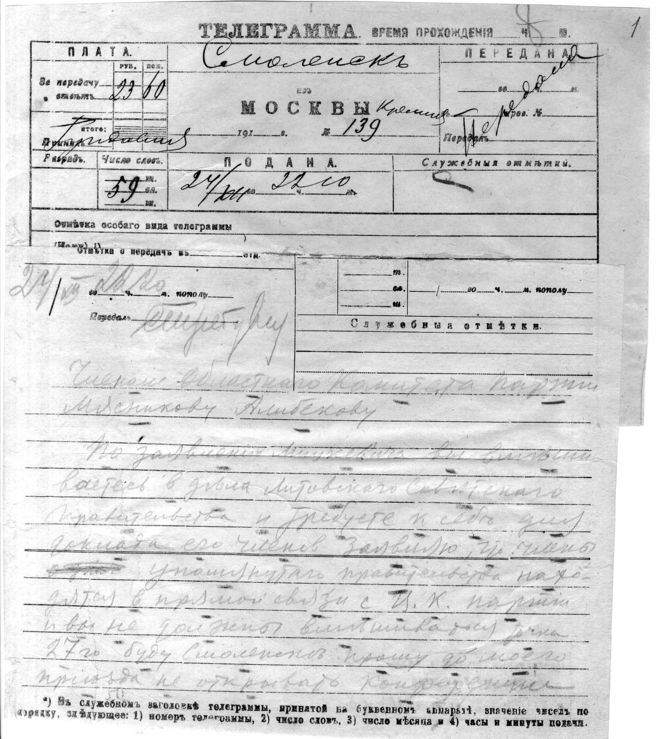 1
ТЕЛЕГРАММА. ВРЕМЯ ПРОХОЖДЕНІЯ
ПЛАТА.
РУБ. КОП.
За передачу
23 60
ИТОГО:
Принялъ
Смоленскъ
изъ
МОСКВЫ Кремля
191 г. № 139
ПЕРЕДАНА
Передана
Передалъ
Разрядъ. Число словъ.
59
ПОДАНА.
24/XII 22 10
Служебныя отмѣтки.
Отмѣтка особаго вида телеграммы
Отмѣтка о передачѣ въ стц.
24/XII
ч. м. пополу
Передалъ
ч. м. пополу
Служебныя отмѣтки.
Членам Областного Комитета партии
Мясникову Алибекову
По заявлению Мицкевича вы вмеши
ваетесь в дела Литовского Советского
правительства и требуете к себе для
доклата его членов Заявляю что члены
упомянутаго правительства нахо-
дятся в прямой связи с Ц. К. партии
и вы не должны вмешиваться
27го буду Смоленске прошу до моего
приезда не открывать конференции
*) Въ служебномъ заголовкѣ телеграммы, принятой на буквенномъ аппаратѣ, значеніе чиселъ по
порядку, слѣдующее: 1) номеръ телеграммы, 2) число словъ, 3) число мѣсяца и 4) часы и минуты подачи.